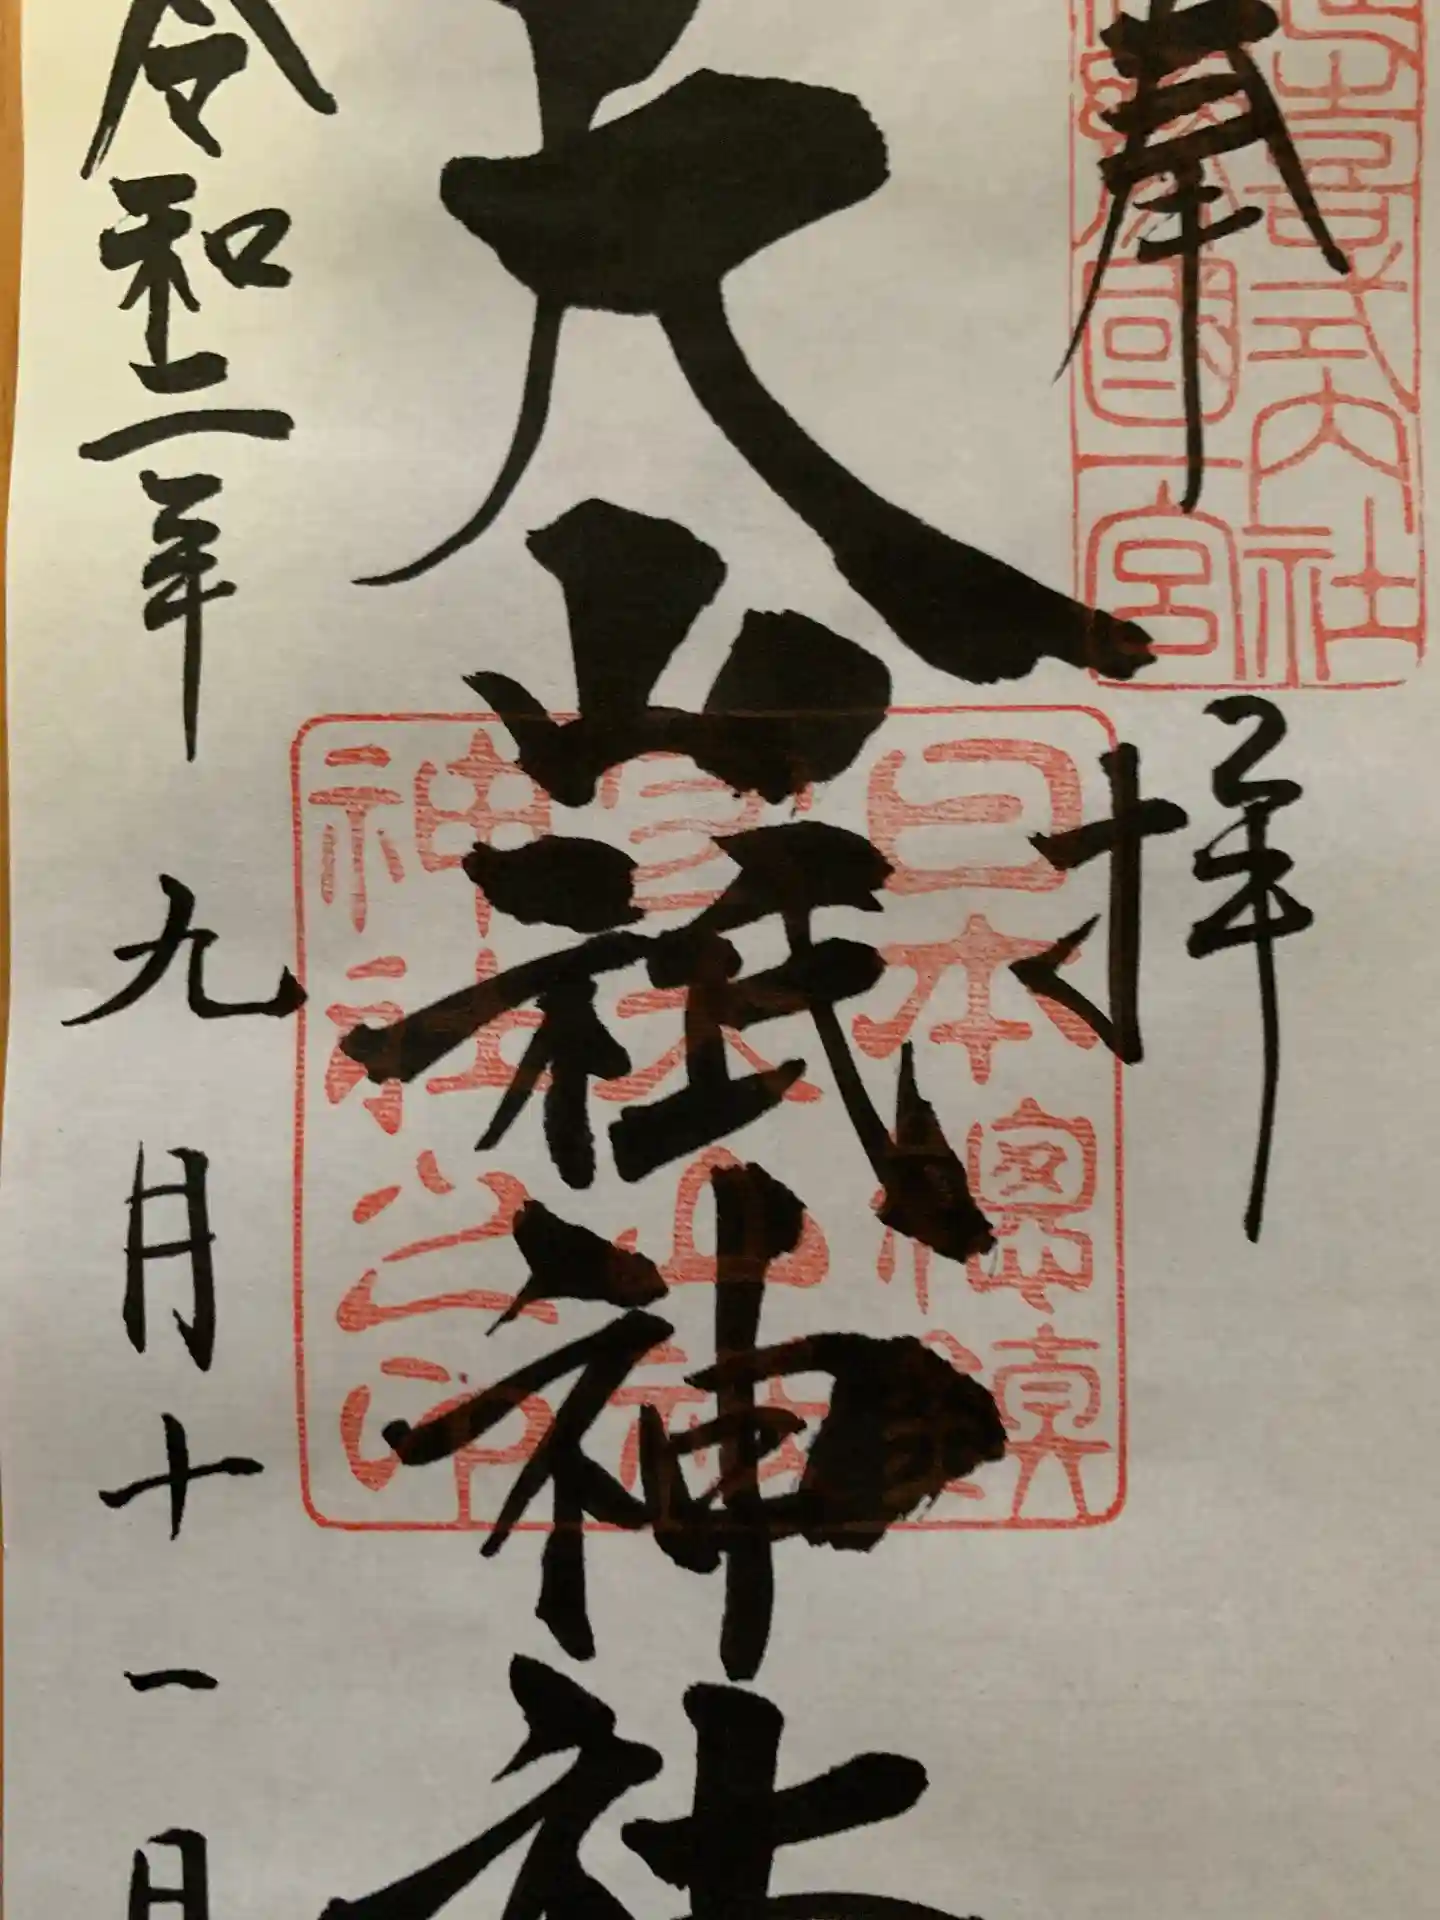 奉拝
喜式内社
豫國一宮
大山祇神社
日本總鎮
大山祇
神社之印
令和二年九月十一日